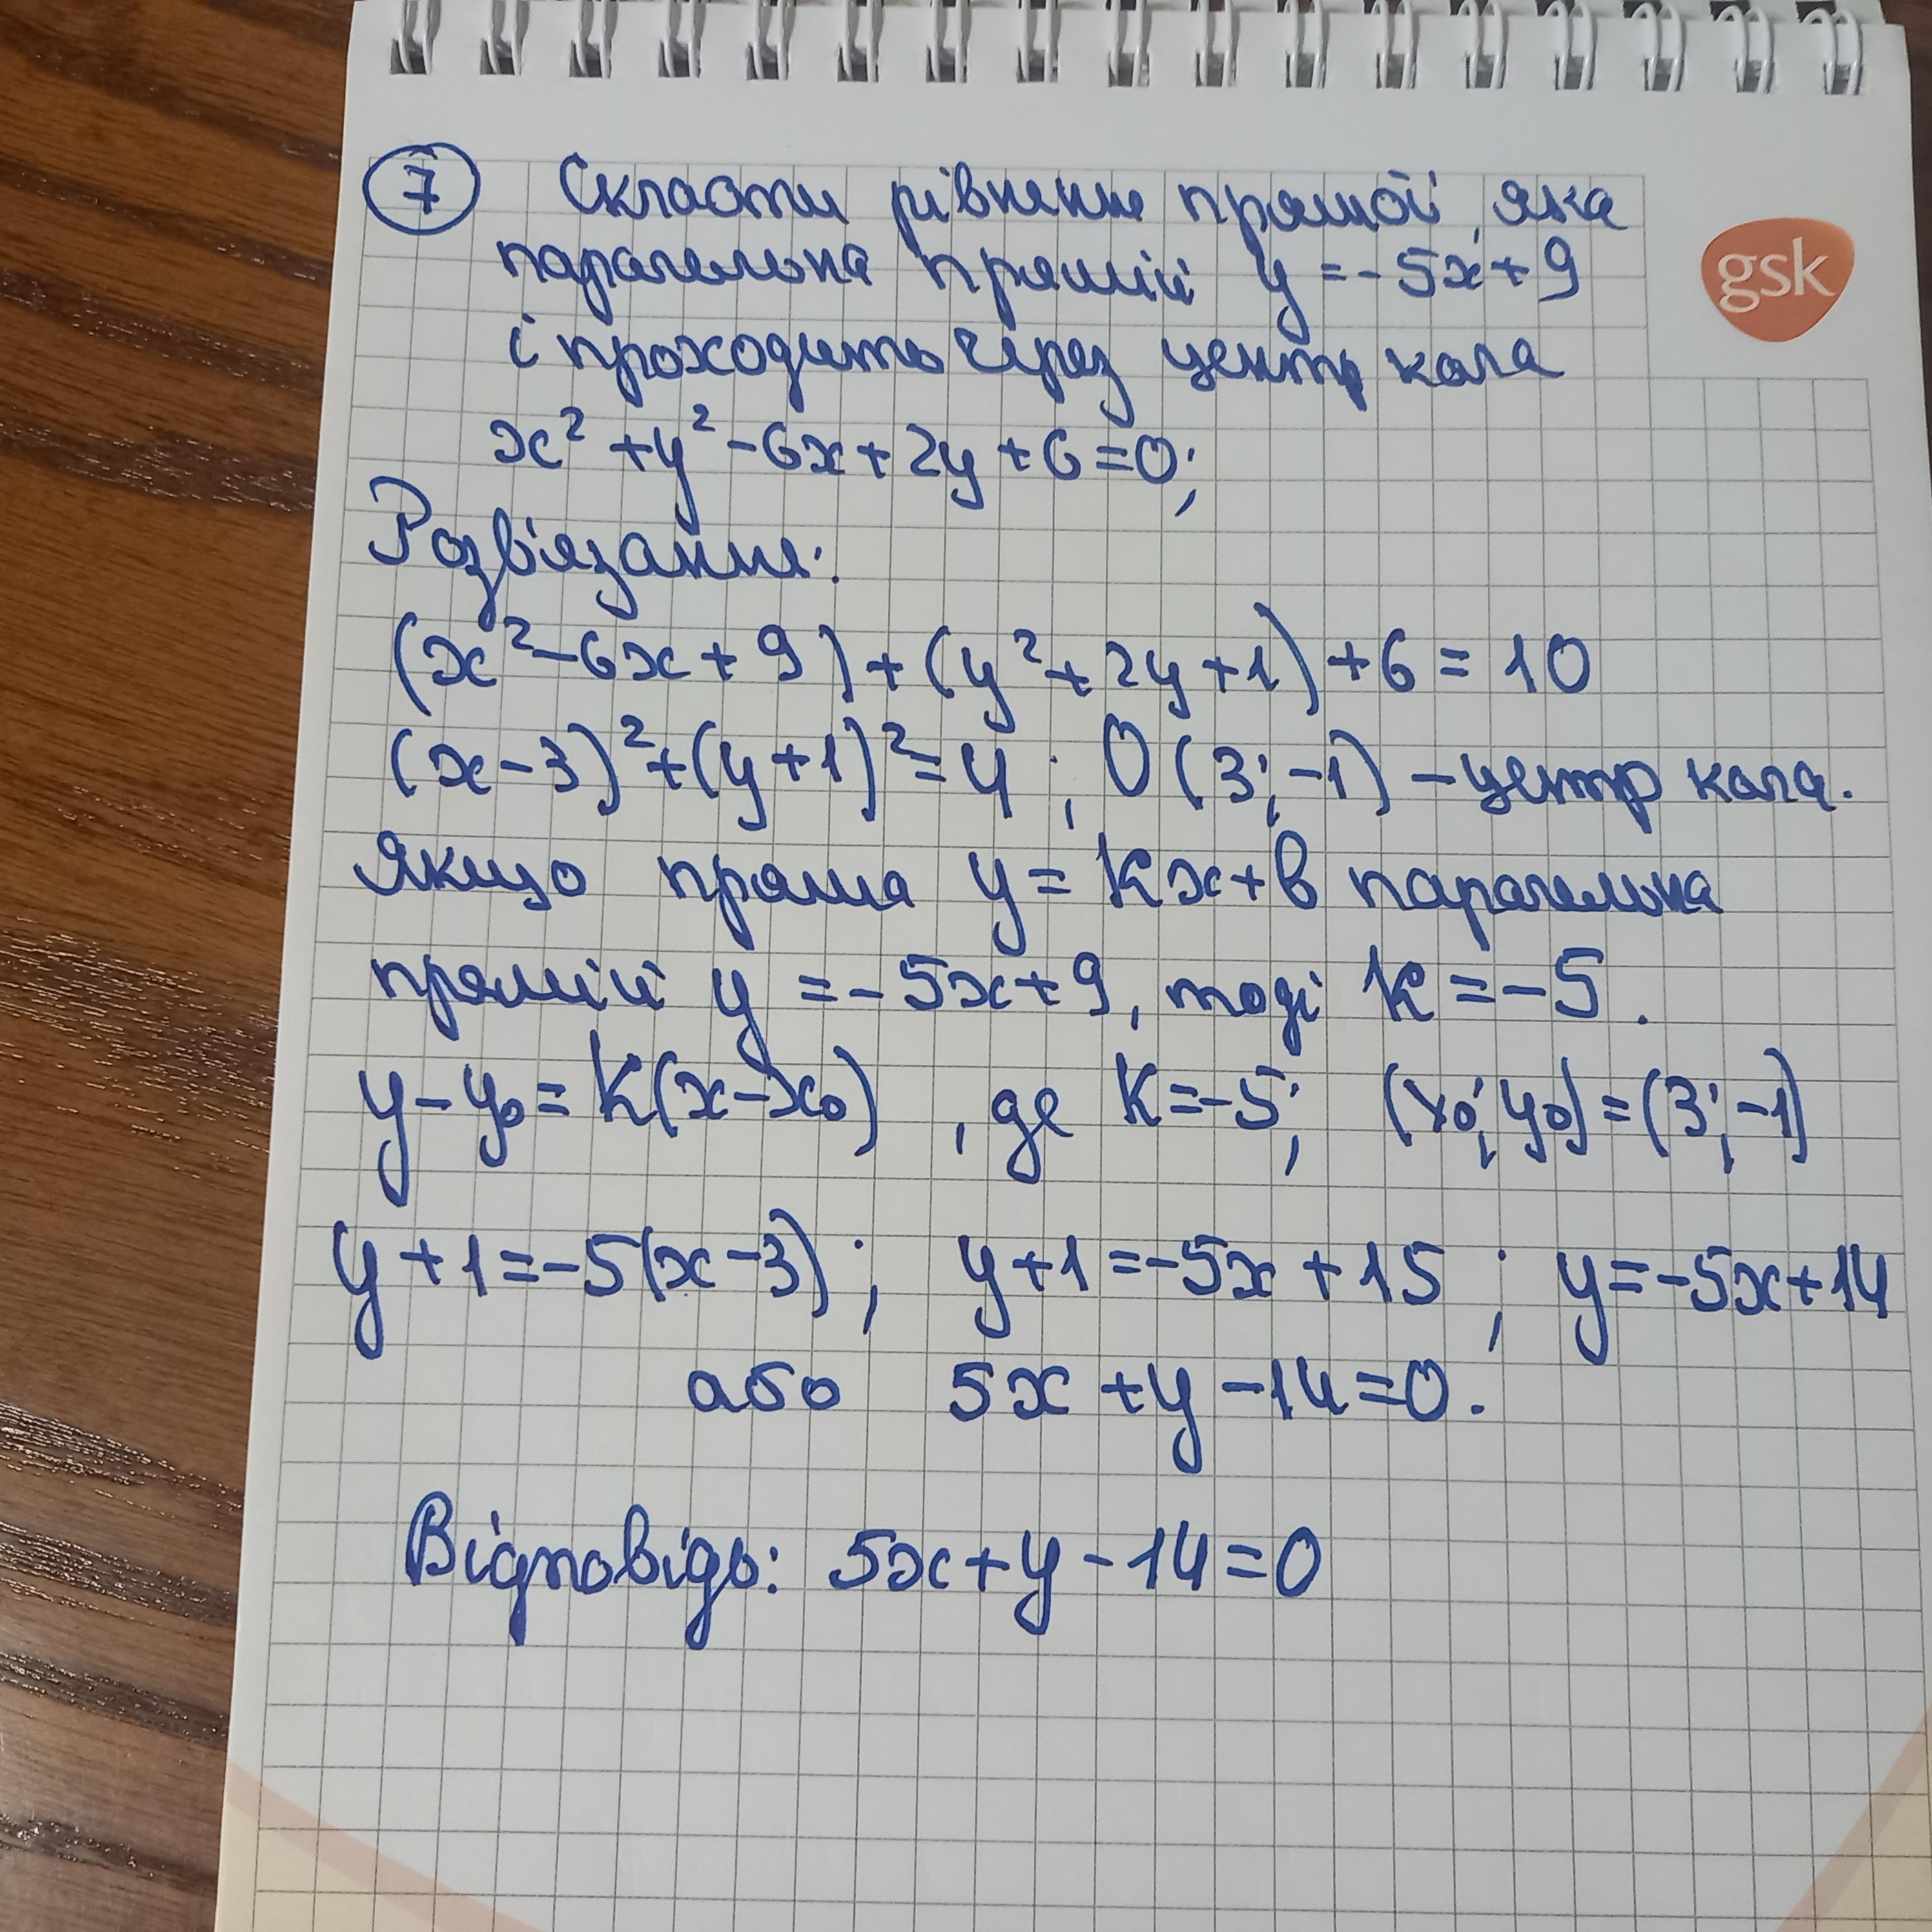 7 Скласти рівняння прямої, яка
gsk
паралельна прямій y = -5x + 9
і проходить через центр кола
x² + y² - 6x + 2y + 6 = 0;
Розв'язання:
(x² - 6x + 9) + (y² + 2y + 1) + 6 = 10
(x - 3)² + (y + 1)² = 4; O(3; -1) - центр кола.
Якщо пряма y = kx + b паралельна
прямій y = -5x + 9, тоді k = -5.
y - y₀ = k(x - x₀), де k = -5; (x₀; y₀) = (3; -1)
y + 1 = -5(x - 3); y + 1 = -5x + 15; y = -5x + 14
або 5x + y - 14 = 0.
Відповідь: 5x + y - 14 = 0